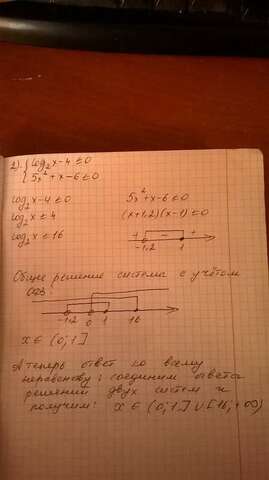 2). { log₂x-4≤0
5x²+x-6≤0
log₂x-4≤0 5x²+x-6≤0
log₂x≤4 (x+1,2)(x-1)≤0
log₂x≤16 + - +
-1,2 1
Общее решение системы с учётом
ОДЗ:
-1,2 0 1 16
x∈(0;1]
А теперь ответ ко всему
неравенству: соединим ответа
решений двух систем и
получим: x∈(0;1]∪[16;+∞)